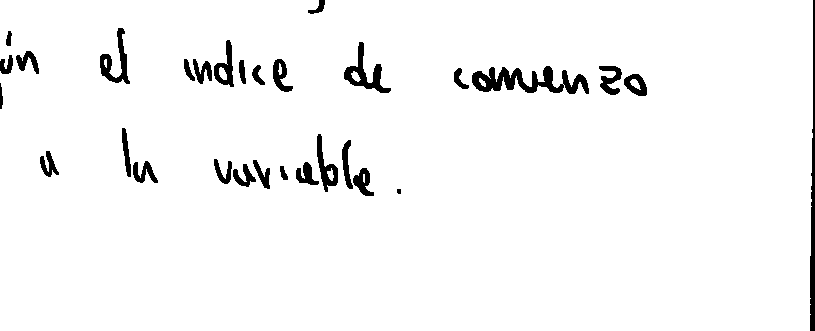 el indice de comienzo
a la variable.